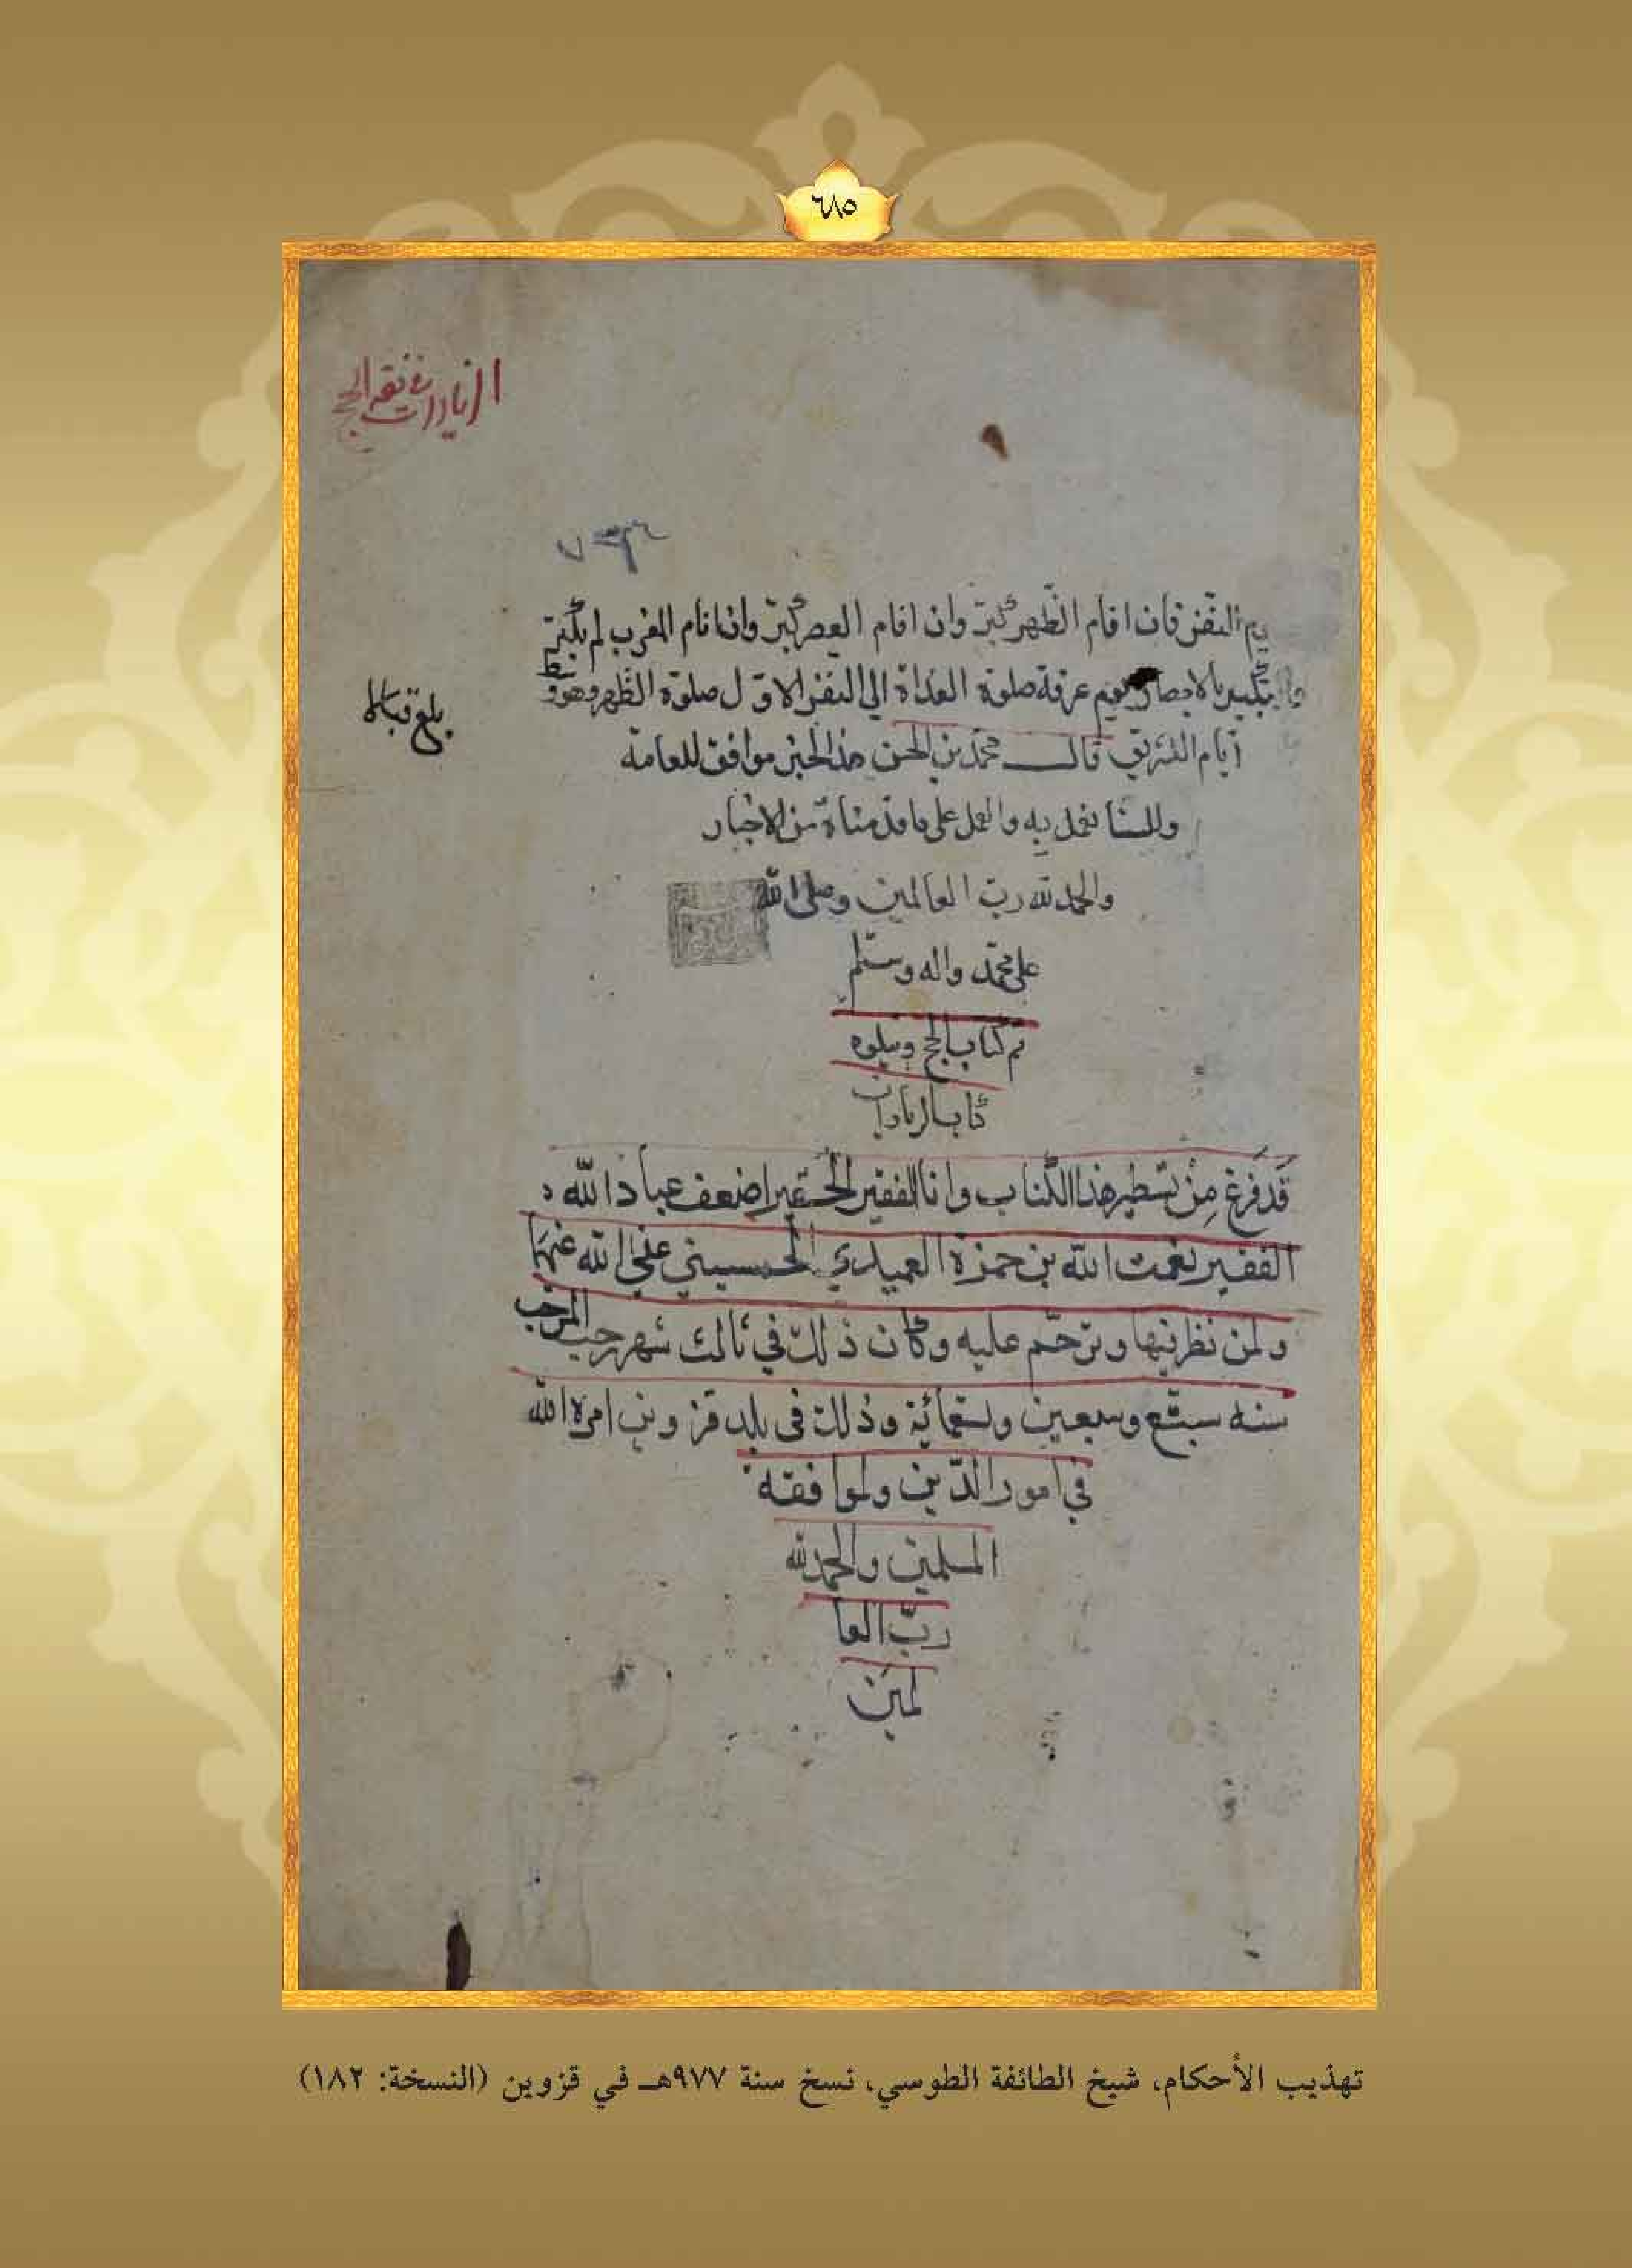 ٦٨٥
الزيادات في فقه الحج
يوم النفر فان اقام الظهر كبّر وان اقام العصر كبّر وان اقام المغرب لم يكبّر
بتكبير بالامصار يوم عرفة صلوة الغداة الى النفر الاوّل صلوة الظهر وهو وسط
ايام التشريق قال محمد بن الحسن هذا الخبر موافق للعامة
بلغ قبالا
ولسنا نعمل به والعمل على ما قدمناه من الاخبار
والحمد لله رب العالمين وصلى الله
على محمّد واله وسلّم
تم كتاب الحج ويتلوه
كتاب الزيارات
قَد فرغ مِنْ تسطير هذا الكتاب وانا الفقير الحقير اضعف عباد الله
الفقير نعمت الله بن حمزة العميدي الحسيني عفى الله عنهَا
ولمن نظر فيها وترحّم عليه وكان ذلك في ثالث شهر رجب المرجب
سنه سبع وسبعين وتسعمائة وذلك فى بلد قزوين امره الله
في امور الدّين ولموافقه
المسلمين والحمد لله
ربّ العا
لمين
تهذيب الأحكام، شيخ الطائفة الطوسي، نسخ سنة ٩٧٧هـ في قزوين (النسخة: ١٨٢)